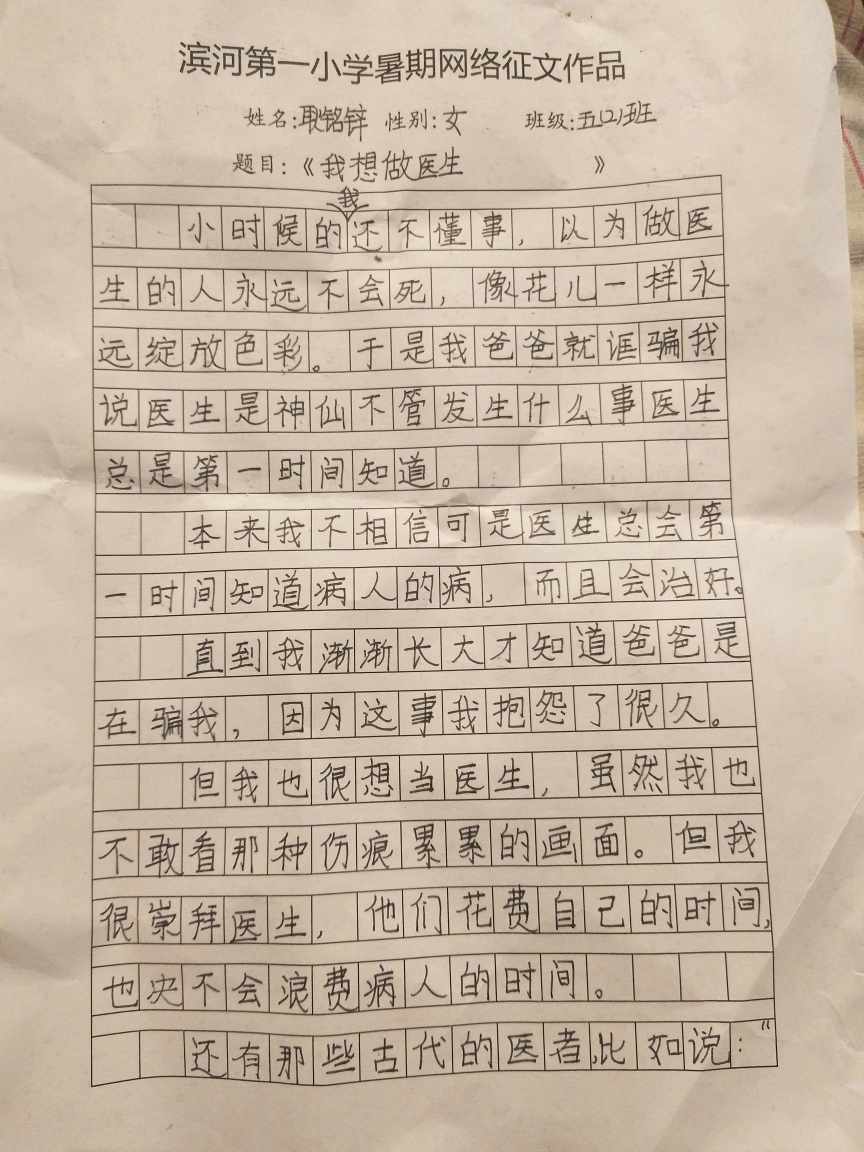 滨河第一小学暑期网络征文作品
姓名:耿铭锌 性别:女 班级:五(2)班
题目:《我想做医生》
我
小时候的还不懂事,以为做医
生的人永远不会死,像花儿一样永
远绽放色彩。于是我爸爸就诓骗我
说医生是神仙不管发生什么事医生
总是第一时间知道。
本来我不相信可是医生总会第
一时间知道病人的病,而且会治好。
直到我渐渐长大才知道爸爸是
在骗我,因为这事我抱怨了很久。
但我也很想当医生,虽然我也
不敢看那种伤痕累累的画面。但我
很崇拜医生,他们花费自己的时间,
也决不会浪费病人的时间。
还有那些古代的医者,比如说:“